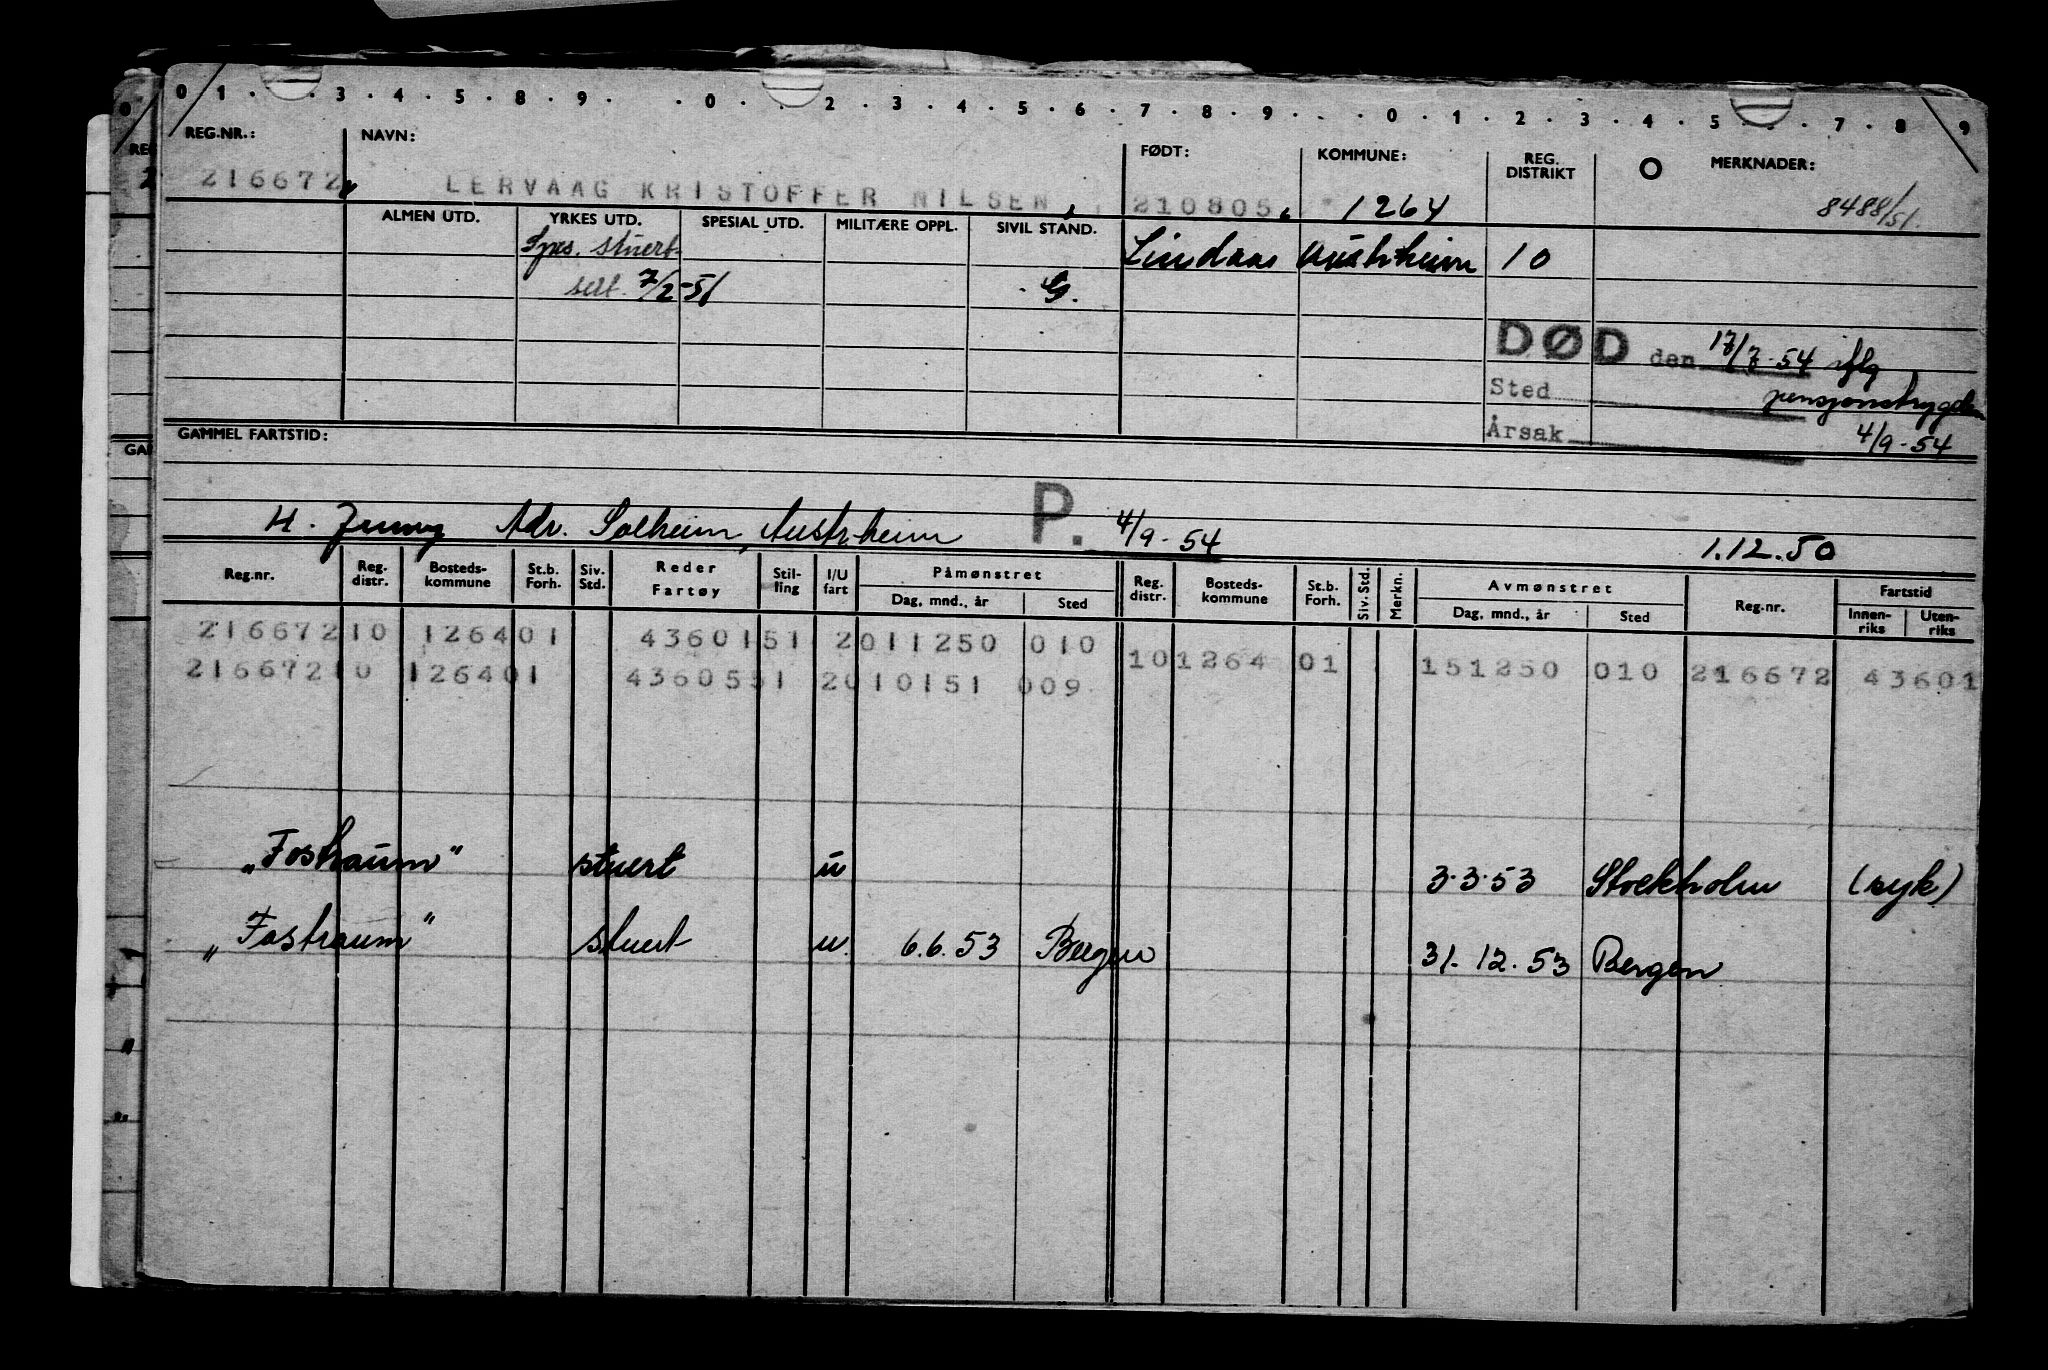 0 1 . . 3 . 4 . 5 . 8 . 9 . . 0 . . 2 . 3 . 4 . 5 . 6 . 7 . 8 . 9 . . 0 . 1 . 2 . 3 . 4 . 5 . . 7 . 8 9
REG.NR.: NAVN: FØDT: KOMMUNE: REG. DISTRIKT O MERKNADER:
216672 LERVAAG KRISTOFFER NILSEN, 210805, 1264 8488/51.
ALMEN UTD. YRKES UTD. SPESIAL UTD. MILITÆRE OPPL. SIVIL STAND.
stuert Lindaas Austrheim 10
sert. 7/2-51 G.
DØD den 17/7-54 iflg
Sted pensjonstrygden
Årsak 4/9-54
GAMMEL FARTSTID:
H. Adr. Solheim, Austrheim P. 4/9-54 1.12.50
Reg.nr. Reg. distr. Bosteds- kommune St.b. Forh. Siv. Std. Reder Fartøy Stil- ling I/U fart Påmønstret Dag, mnd., år Sted Reg. distr. Bosteds- kommune St.b. Forh. Siv. Std. Merkn. Avmønstret Dag, mnd., år Sted Reg.nr. Fartstid Innen- riks Uten- riks
216672 10 1264 01 43601 51 2 011250 010
101264 01 151250 010 216672 43601
216672 10 1264 01 43605 51 2 010151 009
„Fostraum" stuert u 3.3.53 Stockholm (syk)
„Fostraum" stuert u. 6.6.53 Bergen 31.12.53 Bergen